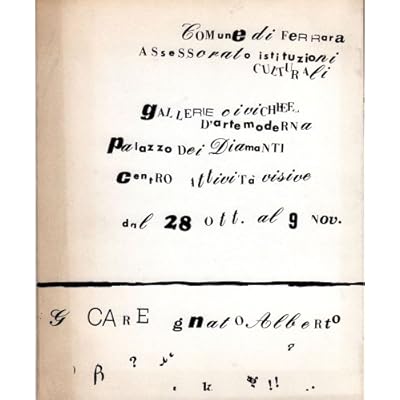 COMunE di FERRara
ASSeSSorato istituzioni
CULTURALi
gALLERIE civiCHE
D'arte moDeRNA
PalaZZO DEi DiamaNTI
CentRO Attività visive
dal 28 ott. al 9 NOV.
G CARE gnatO AlbeRto
?
ß ?
, k !!.